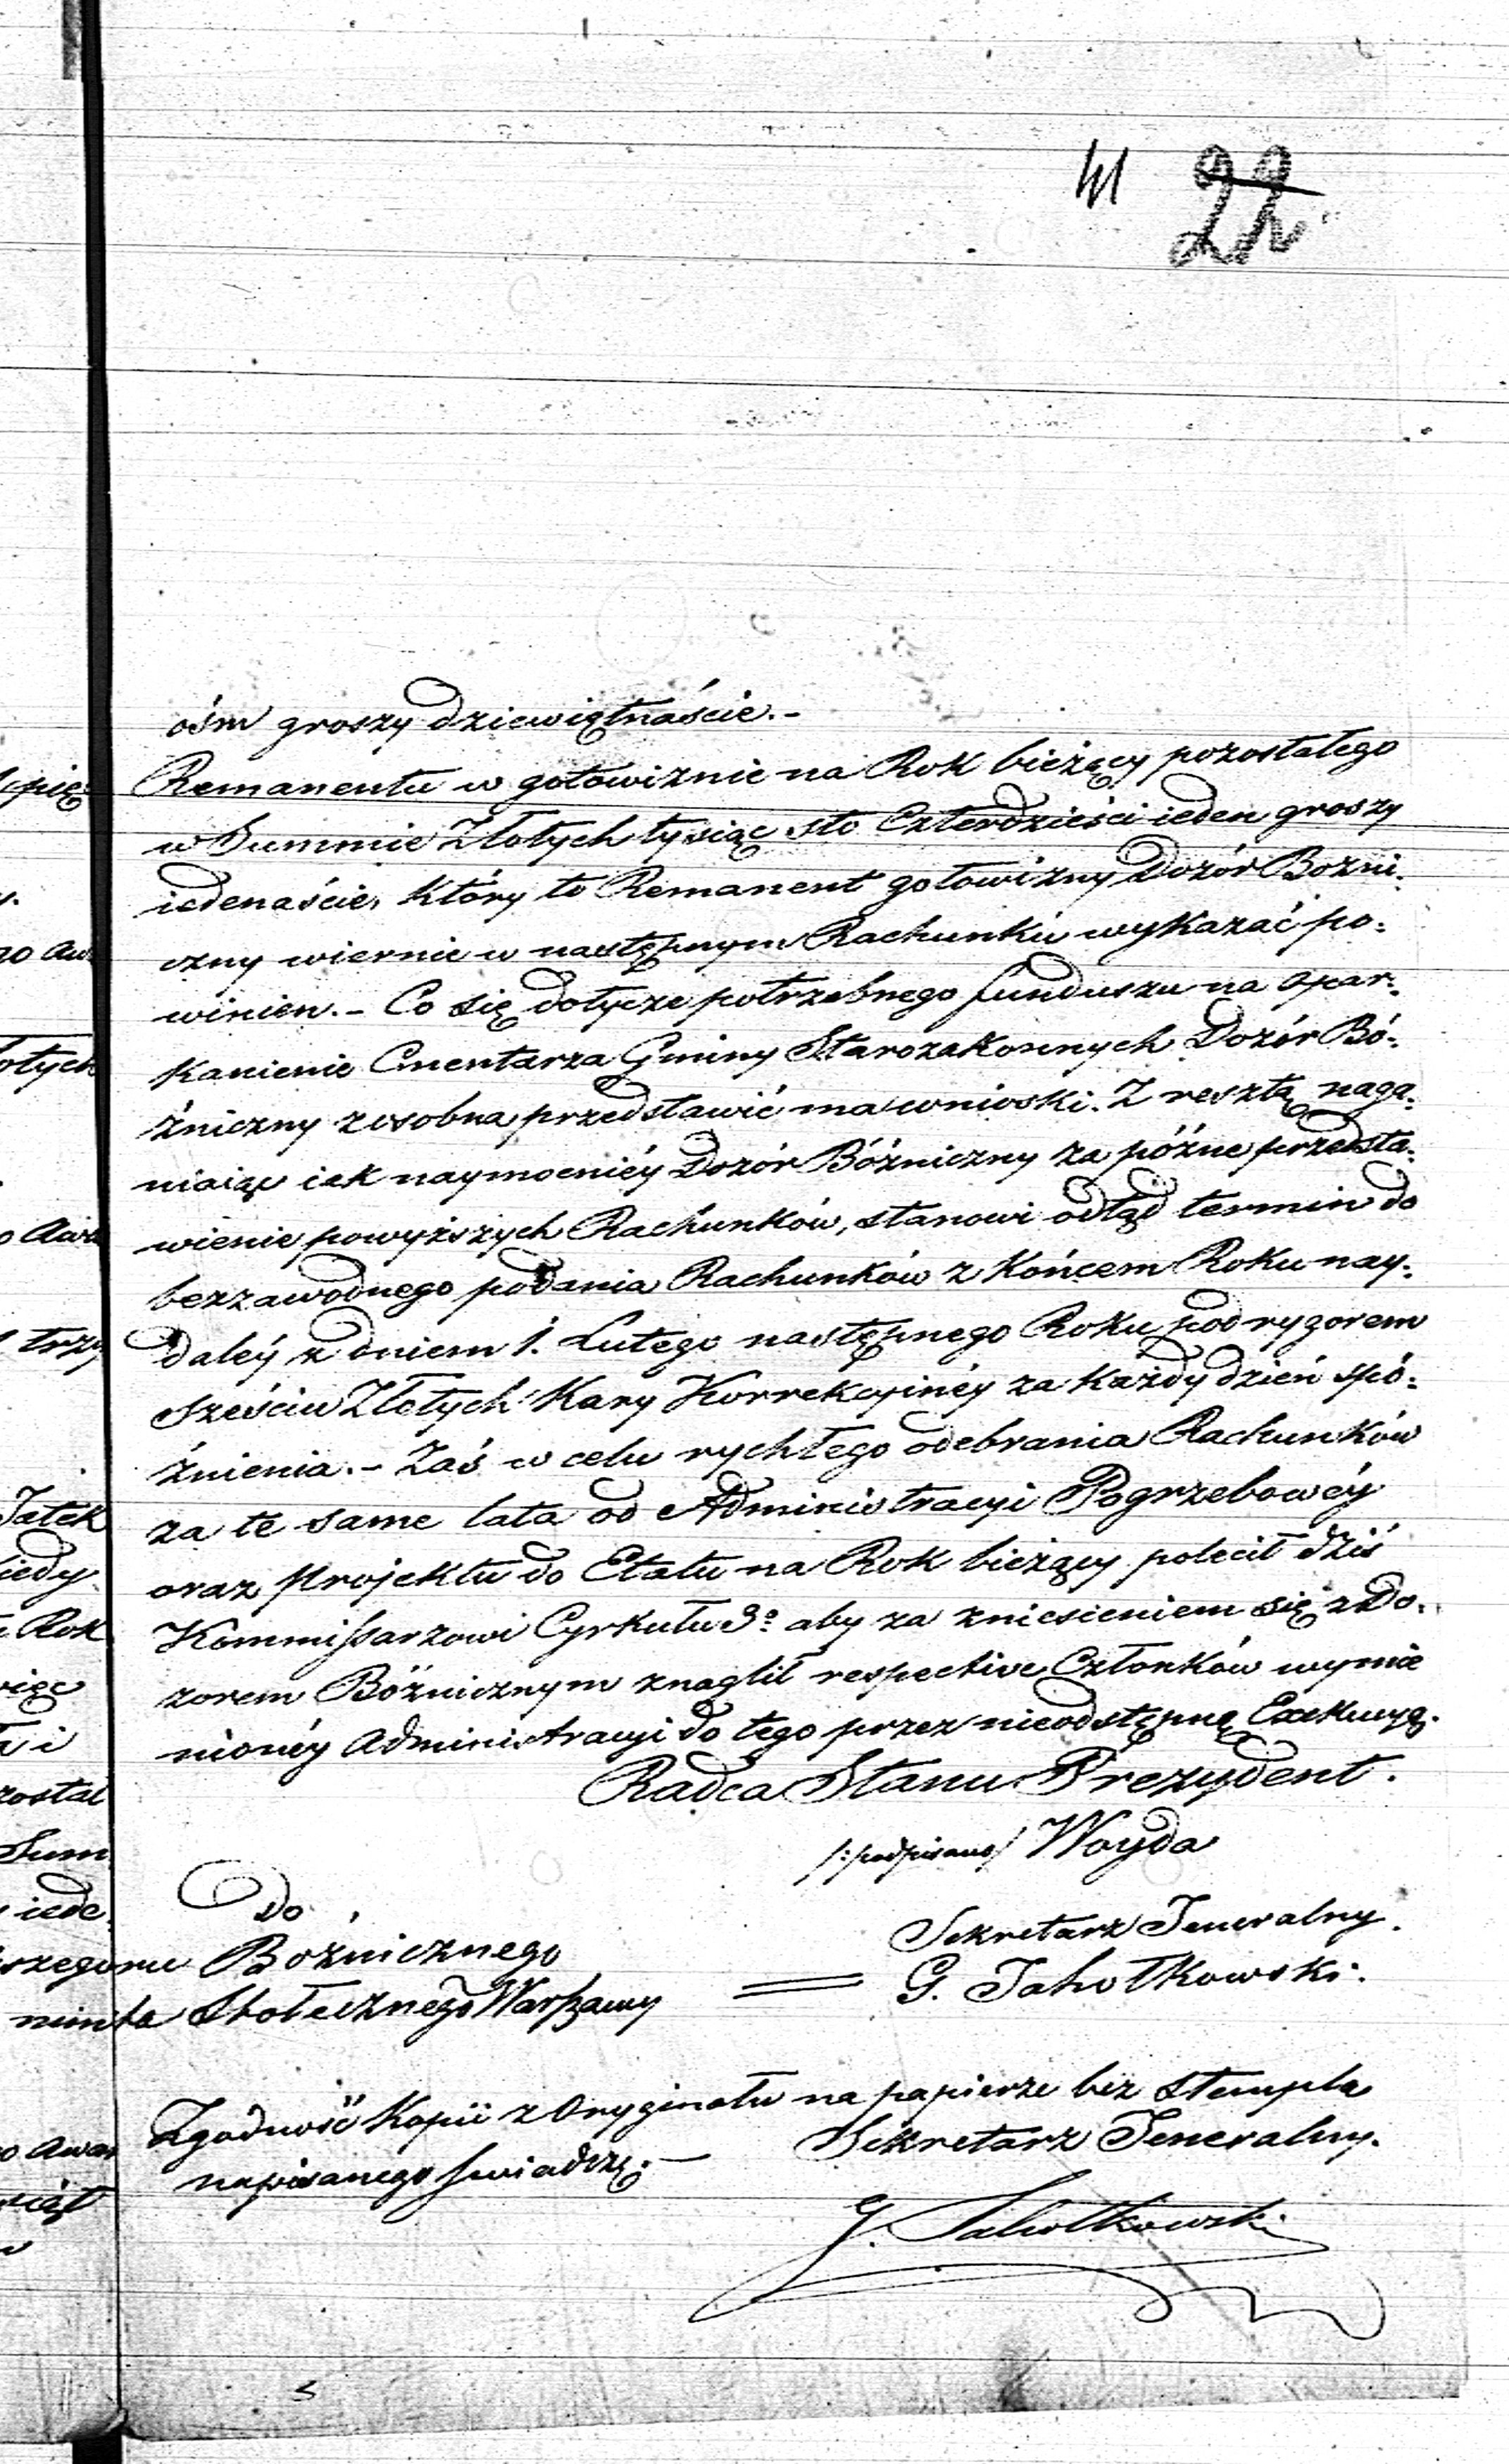 41 22
ośm groszy dziewiętnaście.-
Remanentu w gotowiznie na Rok bieżący pozostałego
w Summie Złotych tysiąc sto Czterdzieści ieden groszy
iedenaście, który to Remanent gotowizny Dozór Bożni-
czny wiernie w następnym Rachunku wykazać po-
winien.- Co się dotycze potrzebnego funduszu na opar-
kanienie Cmentarza Gminy Starozakonnych Dozór Bó-
źniczny zosobna przedstawić ma wnioski. Z resztą naga-
niaiąc iak naymocniéy Dozór Bóżniczny za późne przedsta-
wienie powyższych Rachunków, stanowi odtąd termin do
bezzawodnego podania Rachunków z Końcem Roku nay-
daléy z dniem 1. Lutego następnego Roku pod rygorem
sześciu Złotych Kary Korrekcyinéy za każdy dzień spó-
źnienia.- Zaś w celu rychłego odebrania Rachunków
za te same lata od Administracyi Pogrzebowéy
oraz Projektu do Etatu na Rok bieżący polecił dziś
Kommissarzowi Cyrkułu 3o aby za zniesieniem się z Do-
zorem Bóżnicznym znaglił respective Członków wymie
nionéy Administracyi do tego przez nieodstępną Exekucyą.
Radca Stanu Prezydent.
/:podpisano/ Woyda
Do
Bożnicznego
Stołecznego Warszawy
Sekretarz Jeneralny.
G. Jahołkowski.
Zgodność Kopii z Oryginału na papierze bez stempla
napisanego swiadczę.-
Sekretarz Jeneralny.
G. Jahołkowski